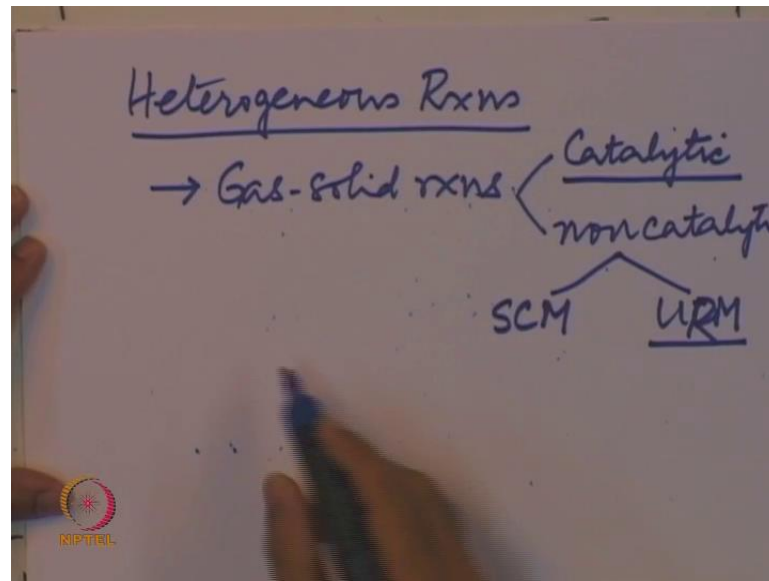 Heterogeneous Rxns
→ Gas-solid rxns
Catalytic
noncatalyt
SCM
URM
NPTEL